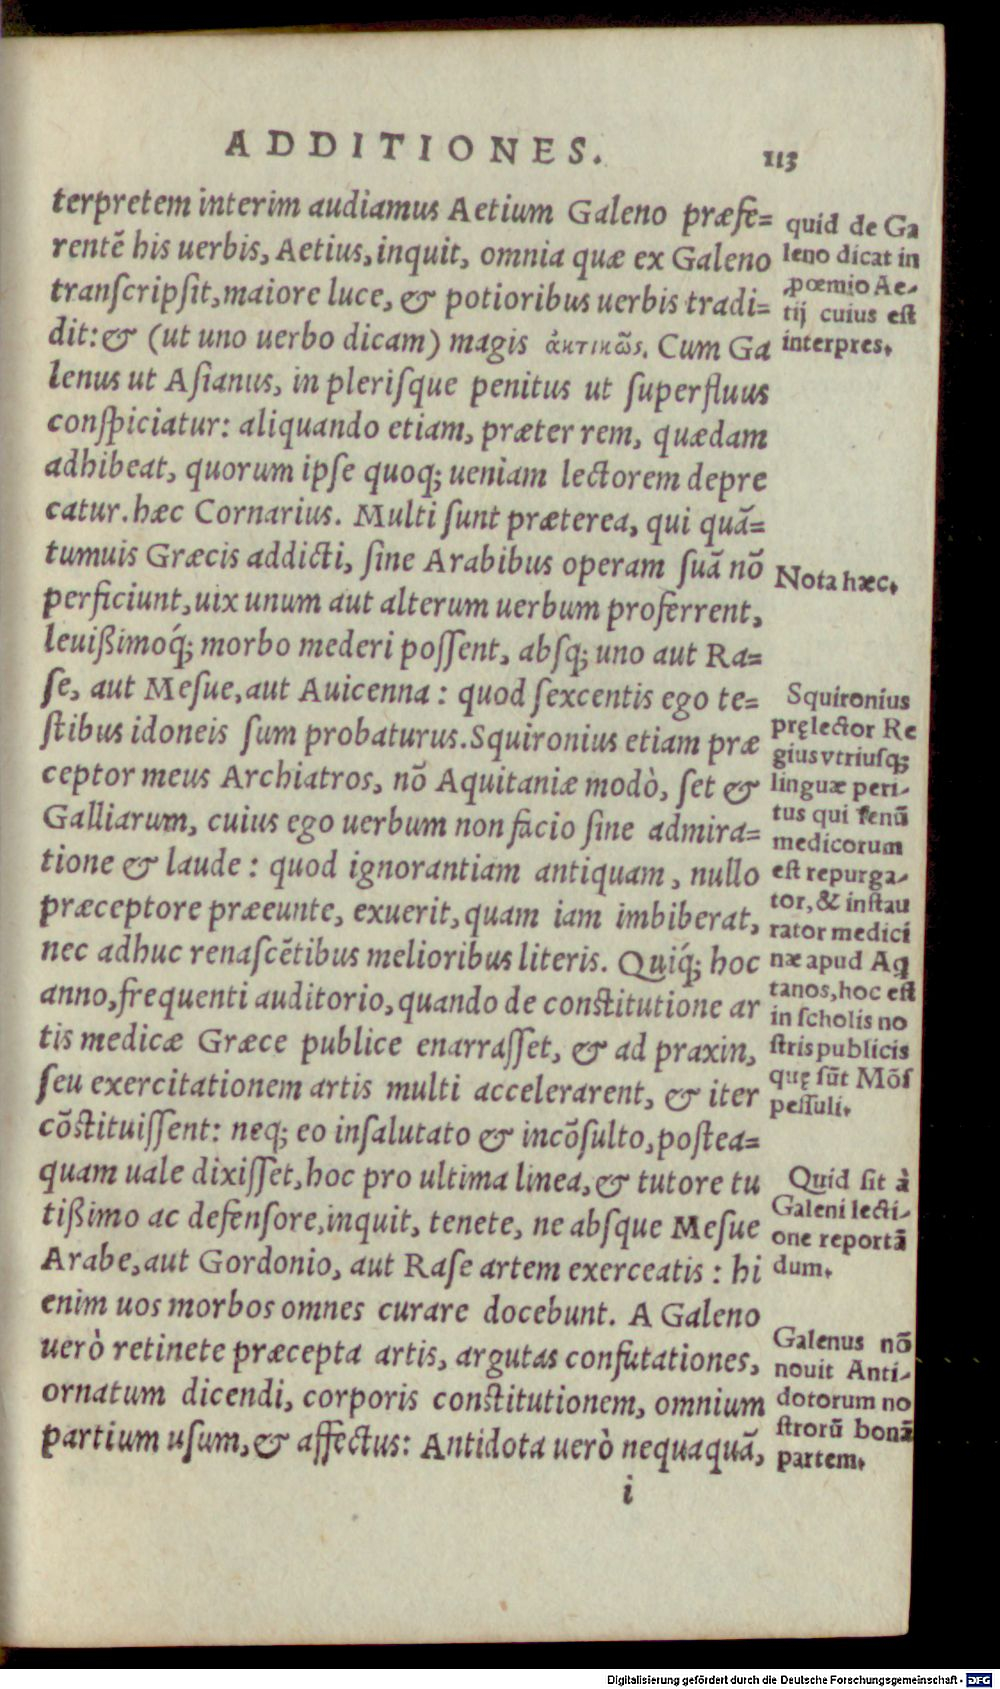 ADDITIONES. 113
terpretem interim audiamus Aetium Galeno præfe=
rentẽ his uerbis, Aetius, inquit, omnia quæ ex Galeno
transcripsit, maiore luce, & potioribus uerbis tradi=
dit: & (ut uno uerbo dicam) magis ἀκτικῶς. Cum Ga
lenus ut Asianus, in plerisque penitus ut superfluus
conspiciatur: aliquando etiam, præter rem, quædam
adhibeat, quorum ipse quoq; ueniam lectorem depre
catur. hæc Cornarius. Multi sunt præterea, qui quã=
tumuis Græcis addicti, sine Arabibus operam suã nõ
perficiunt, uix unum aut alterum uerbum proferrent,
leuißimoq́; morbo mederi possent, absq; uno aut Ra=
se, aut Mesue, aut Auicenna: quod sexcentis ego te=
stibus idoneis sum probaturus. Squironius etiam præ
ceptor meus Archiatros, nõ Aquitaniæ modò, set &
Galliarum, cuius ego uerbum non facio sine admira=
tione & laude: quod ignorantiam antiquam, nullo
præceptore præeunte, exuerit, quam iam imbiberat,
nec adhuc renascẽtibus melioribus literis. Quiq́; hoc
anno, frequenti auditorio, quando de constitutione ar
tis medicæ Græce publice enarrasset, & ad praxin,
seu exercitationem artis multi accelerarent, & iter
cõstituissent: neq; eo insalutato & incõsulto, postea=
quam uale dixisset, hoc pro ultima linea, & tutore tu
tißimo ac defensore, inquit, tenete, ne absque Mesue
Arabe, aut Gordonio, aut Rase artem exerceatis: hi
enim uos morbos omnes curare docebunt. A Galeno
uerò retinete præcepta artis, argutas confutationes,
ornatum dicendi, corporis constitutionem, omnium
partium usum, & affectus: Antidota uerò nequaquã,
i
quid de Ga
leno dicat in
ꝓœmio Ae-
tij cuius est
interpres.
Nota hæc.
Squironius
pręlector Re
gius vtriusq;
linguæ peri-
tus qui fenũ
medicorum
est repurga-
tor, & instau
rator medici
næ apud Aq
tanos, hoc est
in scholis no
stris publicis
quę sũt Mõs
pessuli.
Quid sit à
Galeni lecti-
one reportã
dum.
Galenus nõ
nouit Anti-
dotorum no
strorũ bonã
partem.
Digitalisierung gefördert durch die Deutsche Forschungsgemeinschaft - DFG